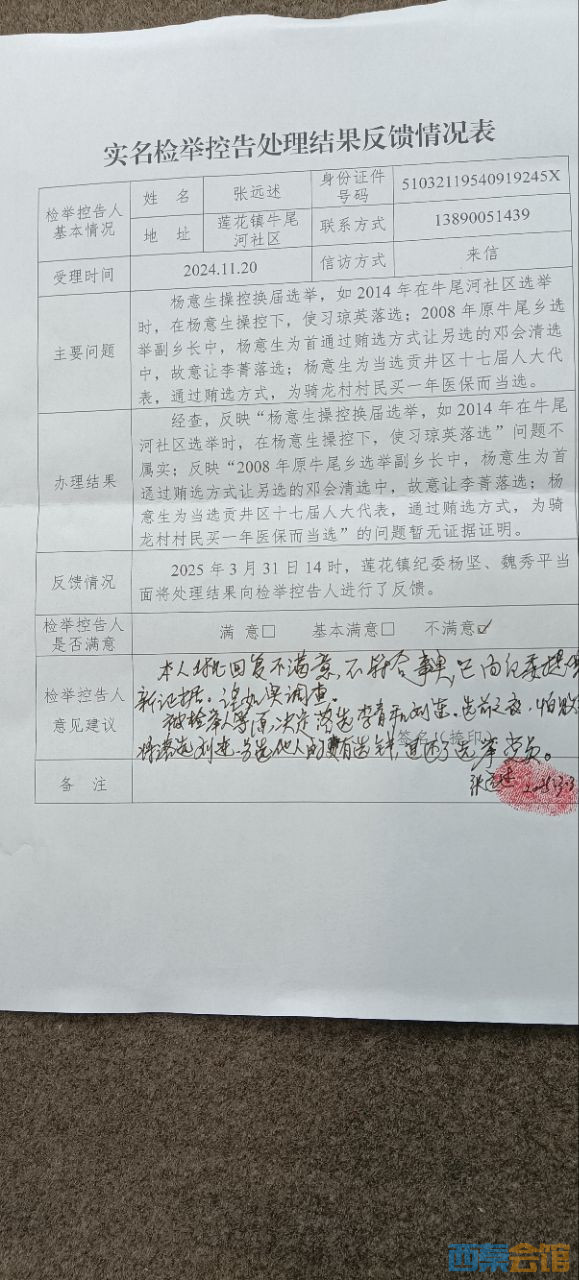 实名检举控告处理结果反馈情况表
检举控告人
基本情况
姓 名
张远述
身份证件
号码
51032119540919245X
地 址
莲花镇牛尾
河社区
联系方式
13890051439
受理时间
2024.11.20
信访方式
来信
主要问题
杨意生操控换届选举，如 2014 年在牛尾河社区选举
时，在杨意生操控下，使习琼英落选；2008 年原牛尾乡选
举副乡长中，杨意生为首通过贿选方式让另选的邓会清选
中，故意让李菁落选；杨意生为当选贡井区十七届人大代
表，通过贿选方式，为骑龙村村民买一年医保而当选。
办理结果
经查，反映“杨意生操控换届选举，如 2014 年在牛尾
河社区选举时，在杨意生操控下，使习琼英落选”问题不
属实；反映“2008 年原牛尾乡选举副乡长中，杨意生为首
通过贿选方式让另选的邓会清选中，故意让李菁落选；杨
意生为当选贡井区十七届人大代表，通过贿选方式，为骑
龙村村民买一年医保而当选”的问题暂无证据证明。
反馈情况
2025 年 3 月 31 日 14 时，莲花镇纪委杨坚、魏秀平当
面将处理结果向检举控告人进行了反馈。
检举控告人
是否满意
满 意□ 基本满意□ 不满意☑
检举控告人
意见建议
本人对此回复不满意，不符合事实，已向纪委提供
新证据。请如实调查。
被检举人等原决定落选李菁和刘
落选刘 另选他人的 了选举
签名（捺印）
张远述 2025.3.3
备 注
西秦会馆